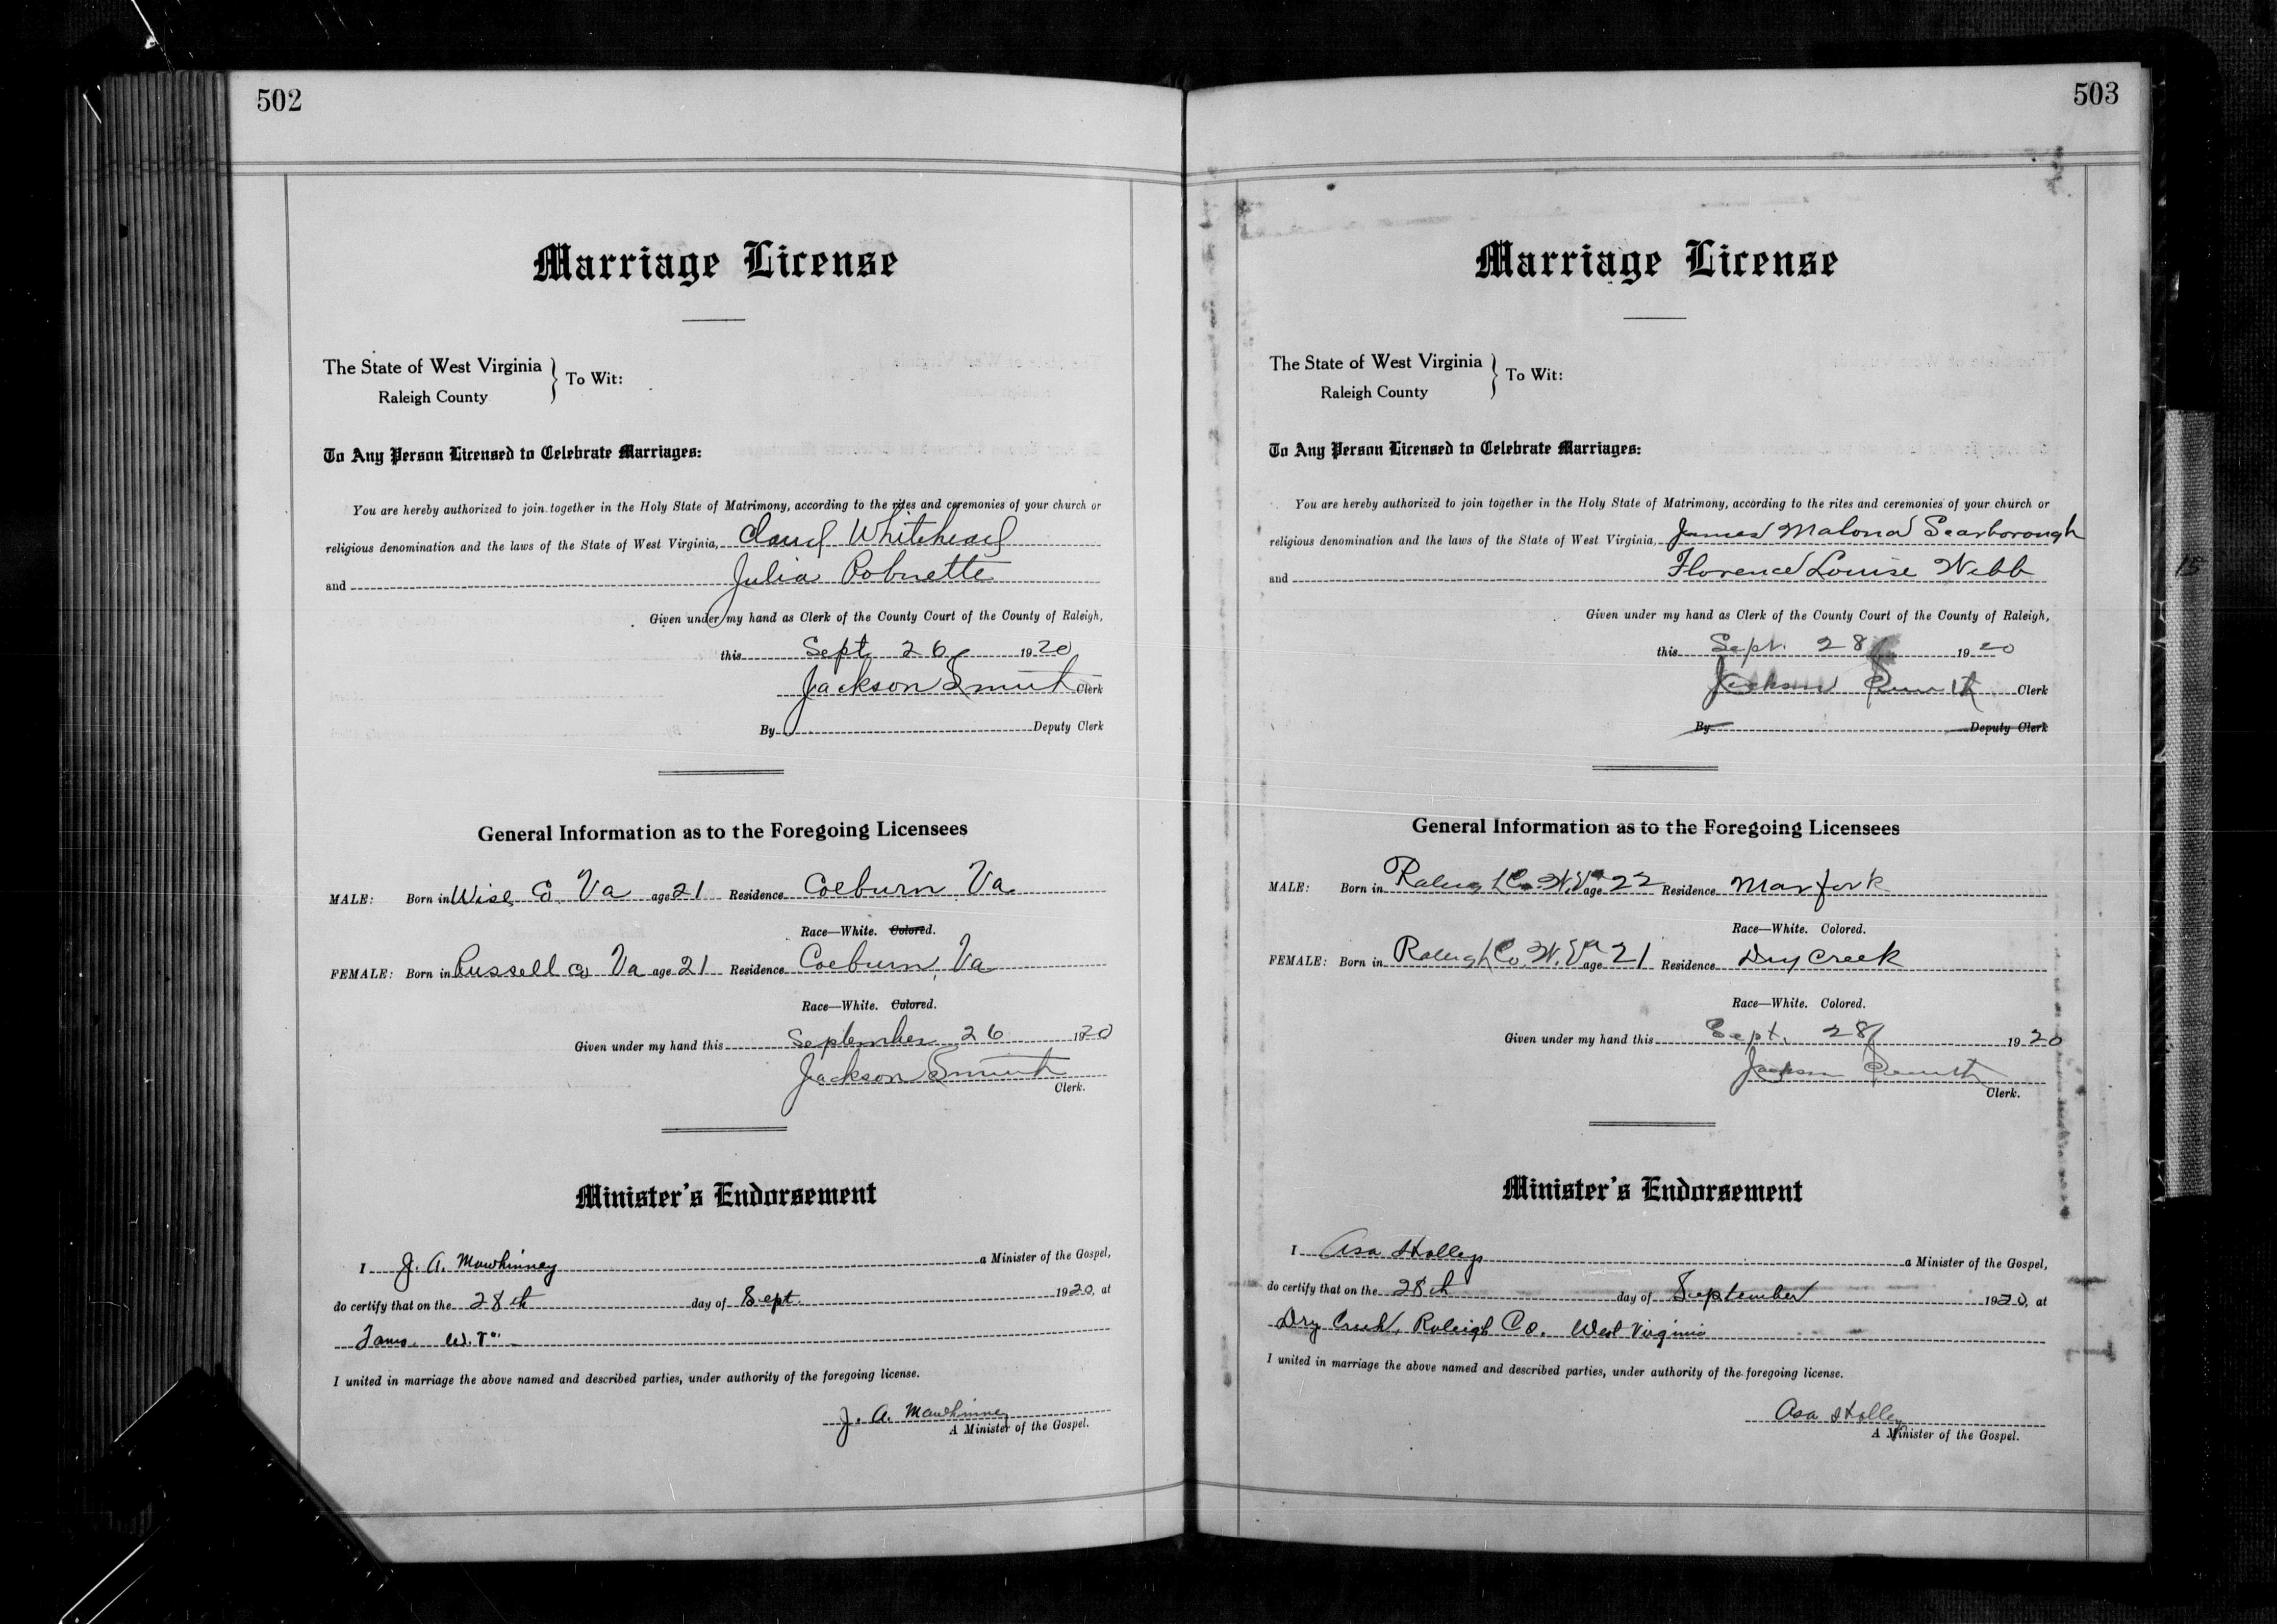 502
Marriage License
The State of West Virginia
Raleigh County
} To Wit:
To Any Person Licensed to Celebrate Marriages:
You are hereby authorized to join together in the Holy State of Matrimony, according to the rites and ceremonies of your church or
religious denomination and the laws of the State of West Virginia, Claud Whitehead
and Julia Robnette
Given under my hand as Clerk of the County Court of the County of Raleigh,
this Sept 26 1920
Jackson Smith Clerk
By Deputy Clerk
General Information as to the Foregoing Licensees
MALE: Born in Wise Co Va age 21 Residence Coeburn Va.
Race—White. Colored.
FEMALE: Born in Russell Co Va age 21 Residence Coeburn, Va
Race—White. Colored.
Given under my hand this September 26 1920
Jackson Smith
Clerk.
Minister's Endorsement
I J. A. Mawhinney a Minister of the Gospel,
do certify that on the 28th day of Sept. 1920, at
Tams W. Va
I united in marriage the above named and described parties, under authority of the foregoing license.
J. A. Mawhinney
A Minister of the Gospel.
503
Marriage License
The State of West Virginia
Raleigh County
} To Wit:
To Any Person Licensed to Celebrate Marriages:
You are hereby authorized to join together in the Holy State of Matrimony, according to the rites and ceremonies of your church or
religious denomination and the laws of the State of West Virginia, James Malona Scarborough
and Florence Louise Webb
Given under my hand as Clerk of the County Court of the County of Raleigh,
this Sept. 28 1920
Jackson Smith Clerk
By Deputy Clerk
General Information as to the Foregoing Licensees
MALE: Born in Raleigh Co. W. Va age 22 Residence Marfork
Race—White. Colored.
FEMALE: Born in Raleigh Co. W. Va age 21 Residence Dry Creek
Race—White. Colored.
Given under my hand this Sept. 28 1920
Jackson Smith
Clerk.
Minister's Endorsement
I Asa Holley a Minister of the Gospel,
do certify that on the 28th day of September 1920, at
Dry Creek, Raleigh Co. West Virginia
I united in marriage the above named and described parties, under authority of the foregoing license.
Asa Holley
A Minister of the Gospel.
15